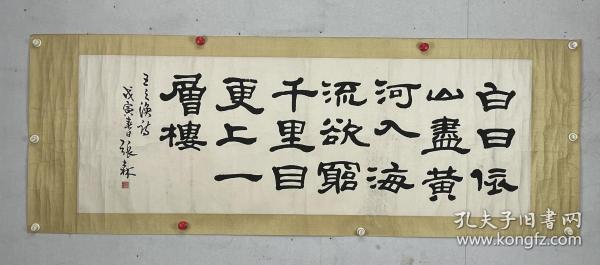 白日依
山盡黃
河入海
流欲窮
千里目
更上一
層樓
王之渙詩
戊寅春日張森
孔夫子旧书网
www.kongfz.com